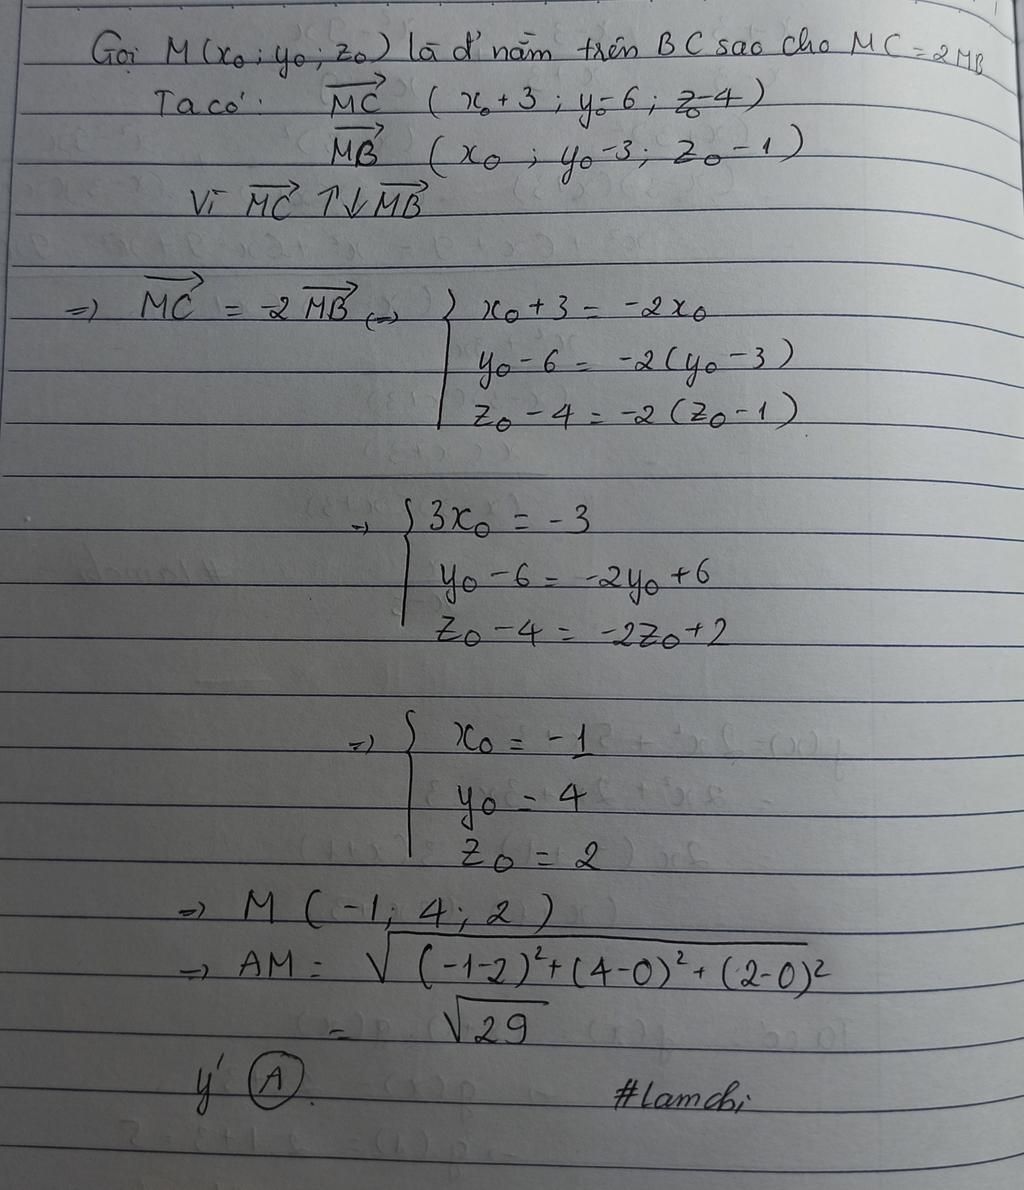 Gọi M(x₀; y₀; z₀) là đ' nằm trên BC sao cho MC = 2MB
Ta có: \overrightarrow{MC} (x₀+3; y₀-6; z₀-4)
\overrightarrow{MB} (x₀; y₀-3; z₀-1)
Vì \overrightarrow{MC} ↑↓ \overrightarrow{MB}
=> \overrightarrow{MC} = -2\overrightarrow{MB} (=> { x₀+3 = -2x₀
y₀-6 = -2(y₀-3)
z₀-4 = -2(z₀-1)
=> { 3x₀ = -3
y₀-6 = -2y₀+6
z₀-4 = -2z₀+2
=> { x₀ = -1
y₀ = 4
z₀ = 2
=> M(-1; 4; 2)
=> AM = √((-1-2)²+(4-0)²+(2-0)²
= √29
ý (A).
#lamchi